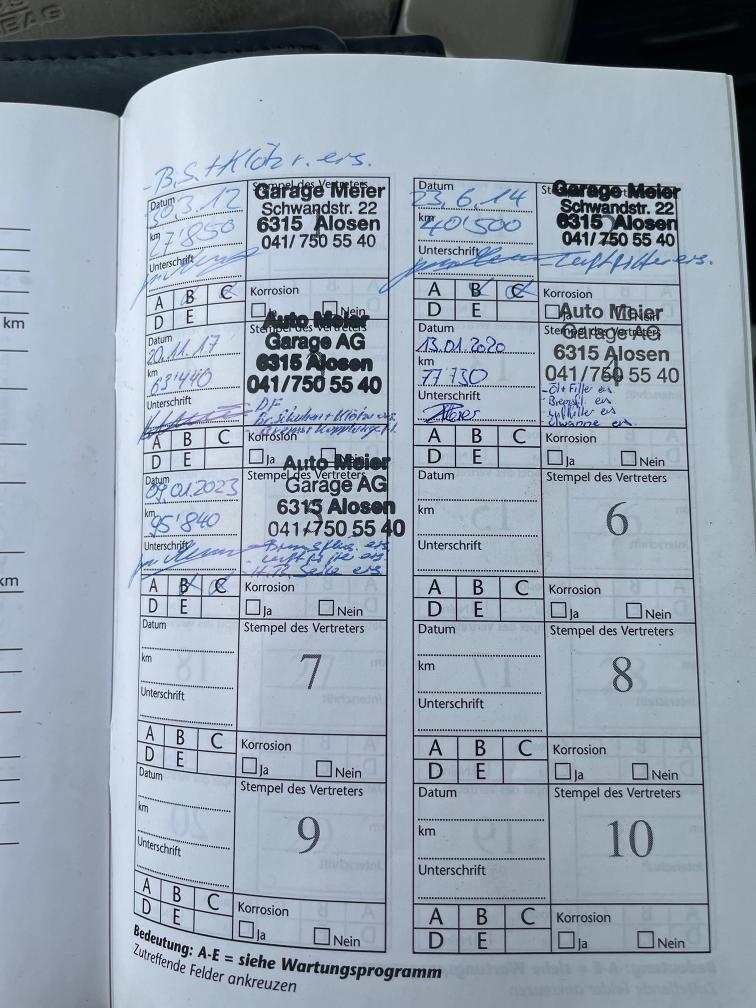 BAG
km
km
- B.S. + Klötz r. ers.
Datum
30.3.12
km
27'850
Unterschrift
Stempel des Vertreters
Garage Meier
Schwandstr. 22
6315 Alosen
041/ 750 55 40
A B C
D E
Korrosion
Ja Nein
Datum
23.6.14
km
40'500
Unterschrift
Garage Meier
Schwandstr. 22
6315 Alosen
041/ 750 55 40
Luftfilter ers.
A B C
D E
Korrosion
Ja Nein
Datum
20.11.17
km
63'440
Unterschrift
Stempel des Vertreters
Auto Meier
Garage AG
6315 Alosen
041/750 55 40
DF
A B C
D E
Korrosion
Ja Nein
Datum
13.01.2020
km
77'730
Unterschrift
Stempel des Vertreters
Auto Meier
Garage AG
6315 Alosen
041/750 55 40
- Öl + Filter ers
A B C
D E
Korrosion
Ja Nein
Datum
09.01.2023
km
95'840
Unterschrift
Stempel des Vertreters
Auto Meier
Garage AG
6315 Alosen
041/750 55 40
- Bremsflüs. ers.
- Luftfilter ers
A B C
D E
Korrosion
Ja Nein
Datum
km
Unterschrift
Stempel des Vertreters
6
A B C
D E
Korrosion
Ja Nein
Datum
km
Unterschrift
Stempel des Vertreters
7
A B C
D E
Korrosion
Ja Nein
Datum
km
Unterschrift
Stempel des Vertreters
8
A B C
D E
Korrosion
Ja Nein
Datum
km
Unterschrift
Stempel des Vertreters
9
A B C
D E
Korrosion
Ja Nein
Datum
km
Unterschrift
Stempel des Vertreters
10
A B C
D E
Korrosion
Ja Nein
Bedeutung: A-E = siehe Wartungsprogramm
Zutreffende Felder ankreuzen